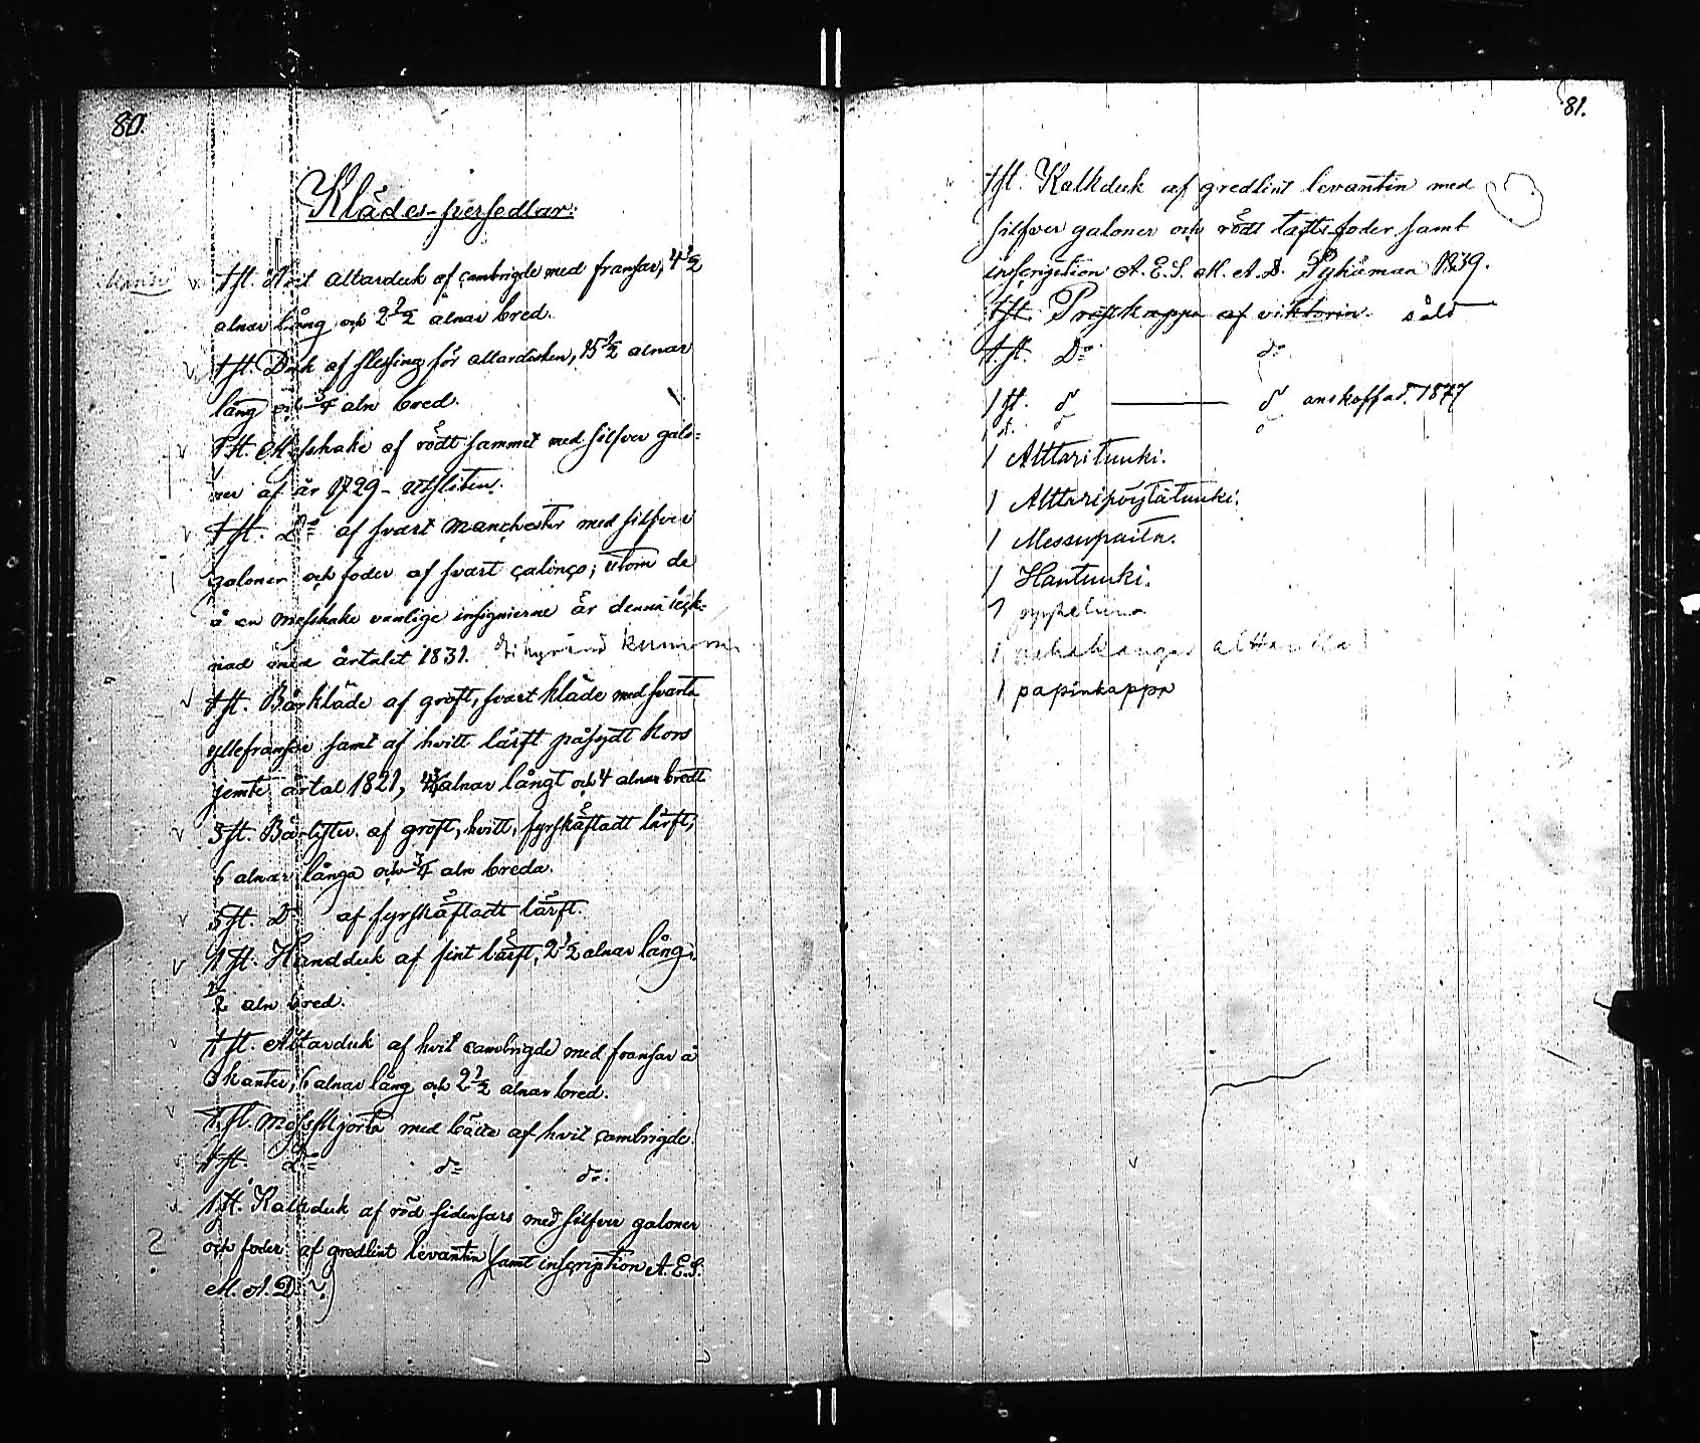 80.
Klädes-persedlar:
1 st. Hvit altarduk af cambrigde med fransar, 4 1/2
alnar lång och 2 1/2 alnar bred.
1 st. Duk af slesing för altardisken, 15 1/2 alnar
lång och 3/4 aln bred.
1 st. Messhake af rödt sammet med silfver galo=
ner af år 1729 - utsliten.
1 st. Do af svart manchester med silfver
galoner och foder af svart calinço; utom de
å en messhake vanlige insignierne är denna teck=
nad med årtalet 1831.
1 st. Bårkläde af groft, svart kläde med svarta
yllefransar samt af hvitt lärft påsydt kors
jemte årtal 1821, alnar långt och 4 alnar bredt
3 st. Bårlister af groft, hvitt, fyrskäftadt lärft,
6 alnar långa och 3/4 aln breda.
3 st. Do af fyrskäftadt lärft.
1 st. Handduk af fint lärft, 2 1/2 alnar lång,
1/2 aln bred.
1 st. Altarduk af hvit cambrigde med fransar å
3 kanter, 6 alnar lång och 2 1/2 alnar bred.
1 st. Mess skjorta med bälte af hvit cambrigde.
1 st. Do do do
1 st. Kalkduk af röd sidensars med silfver galoner
? och foder af gredlint levantin (samt inscription A. E. S.
M. A. D. ?)
81.
1 st. Kalkduk af gredlint levantin med
silfver galoner och rödt tafts foder samt
inscription A. E. S. M. A. D. Pyhämaa 1839.
1 st. Prästkappa af viktorin. såld
1 st. Do do
1 st. do do anskaffad. 1877
1 st. do do
1 Alttariliinki.
1 Alttaripöytäliinki.
1 Messupaita.
1 Hantuuki.
1
1 alttarilla
1 papinkappa